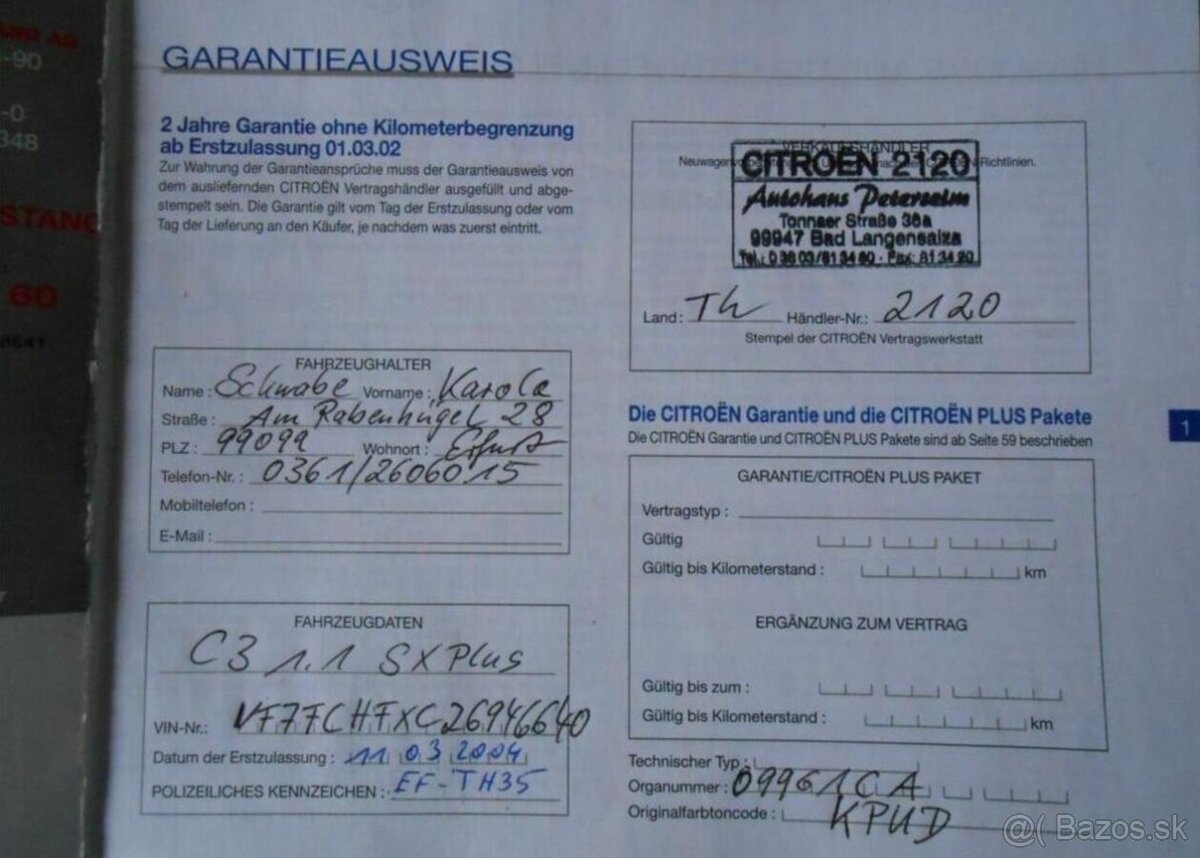 AND AG
-90
-0
348
STANG
60
8641
GARANTIEAUSWEIS
2 Jahre Garantie ohne Kilometerbegrenzung
ab Erstzulassung 01.03.02
Zur Wahrung der Garantieansprüche muss der Garantieausweis von
dem ausliefernden CITROËN Vertragshändler ausgefüllt und abge-
stempelt sein. Die Garantie gilt vom Tag der Erstzulassung oder vom
Tag der Lieferung an den Käufer, je nachdem was zuerst eintritt.
FAHRZEUGHALTER
Name : Schwabe Vorname : Karola
Straße : Am Rabenhügel 28
PLZ : 99099 Wohnort : Erfurt
Telefon-Nr. : 0361/2606015
Mobiltelefon :
E-Mail :
FAHRZEUGDATEN
C3 1.1 SX Plus
VIN-Nr.: VF7FCHFXC26946640
Datum der Erstzulassung : 11 03 2004
POLIZEILICHES KENNZEICHEN : EF-TH35
VERKAUFSHÄNDLER
Richtlinien.
CITROËN 2120
Autohaus Peterseim
Tonnaer Straße 36a
99947 Bad Langensalza
Tel.: 0 36 03/81 34 60 · Fax: 81 34 20
Land : Th Händler-Nr.: 2120
Stempel der CITROËN Vertragswerkstatt
Die CITROËN Garantie und die CITROËN PLUS Pakete
Die CITROËN Garantie und CITROËN PLUS Pakete sind ab Seite 59 beschrieben
1
GARANTIE/CITROËN PLUS PAKET
Vertragstyp :
Gültig
Gültig bis Kilometerstand : km
ERGÄNZUNG ZUM VERTRAG
Gültig bis zum :
Gültig bis Kilometerstand : km
Technischer Typ :
Organummer : 09961CA
Originalfarbtoncode : KPUD
@( Bazos.sk